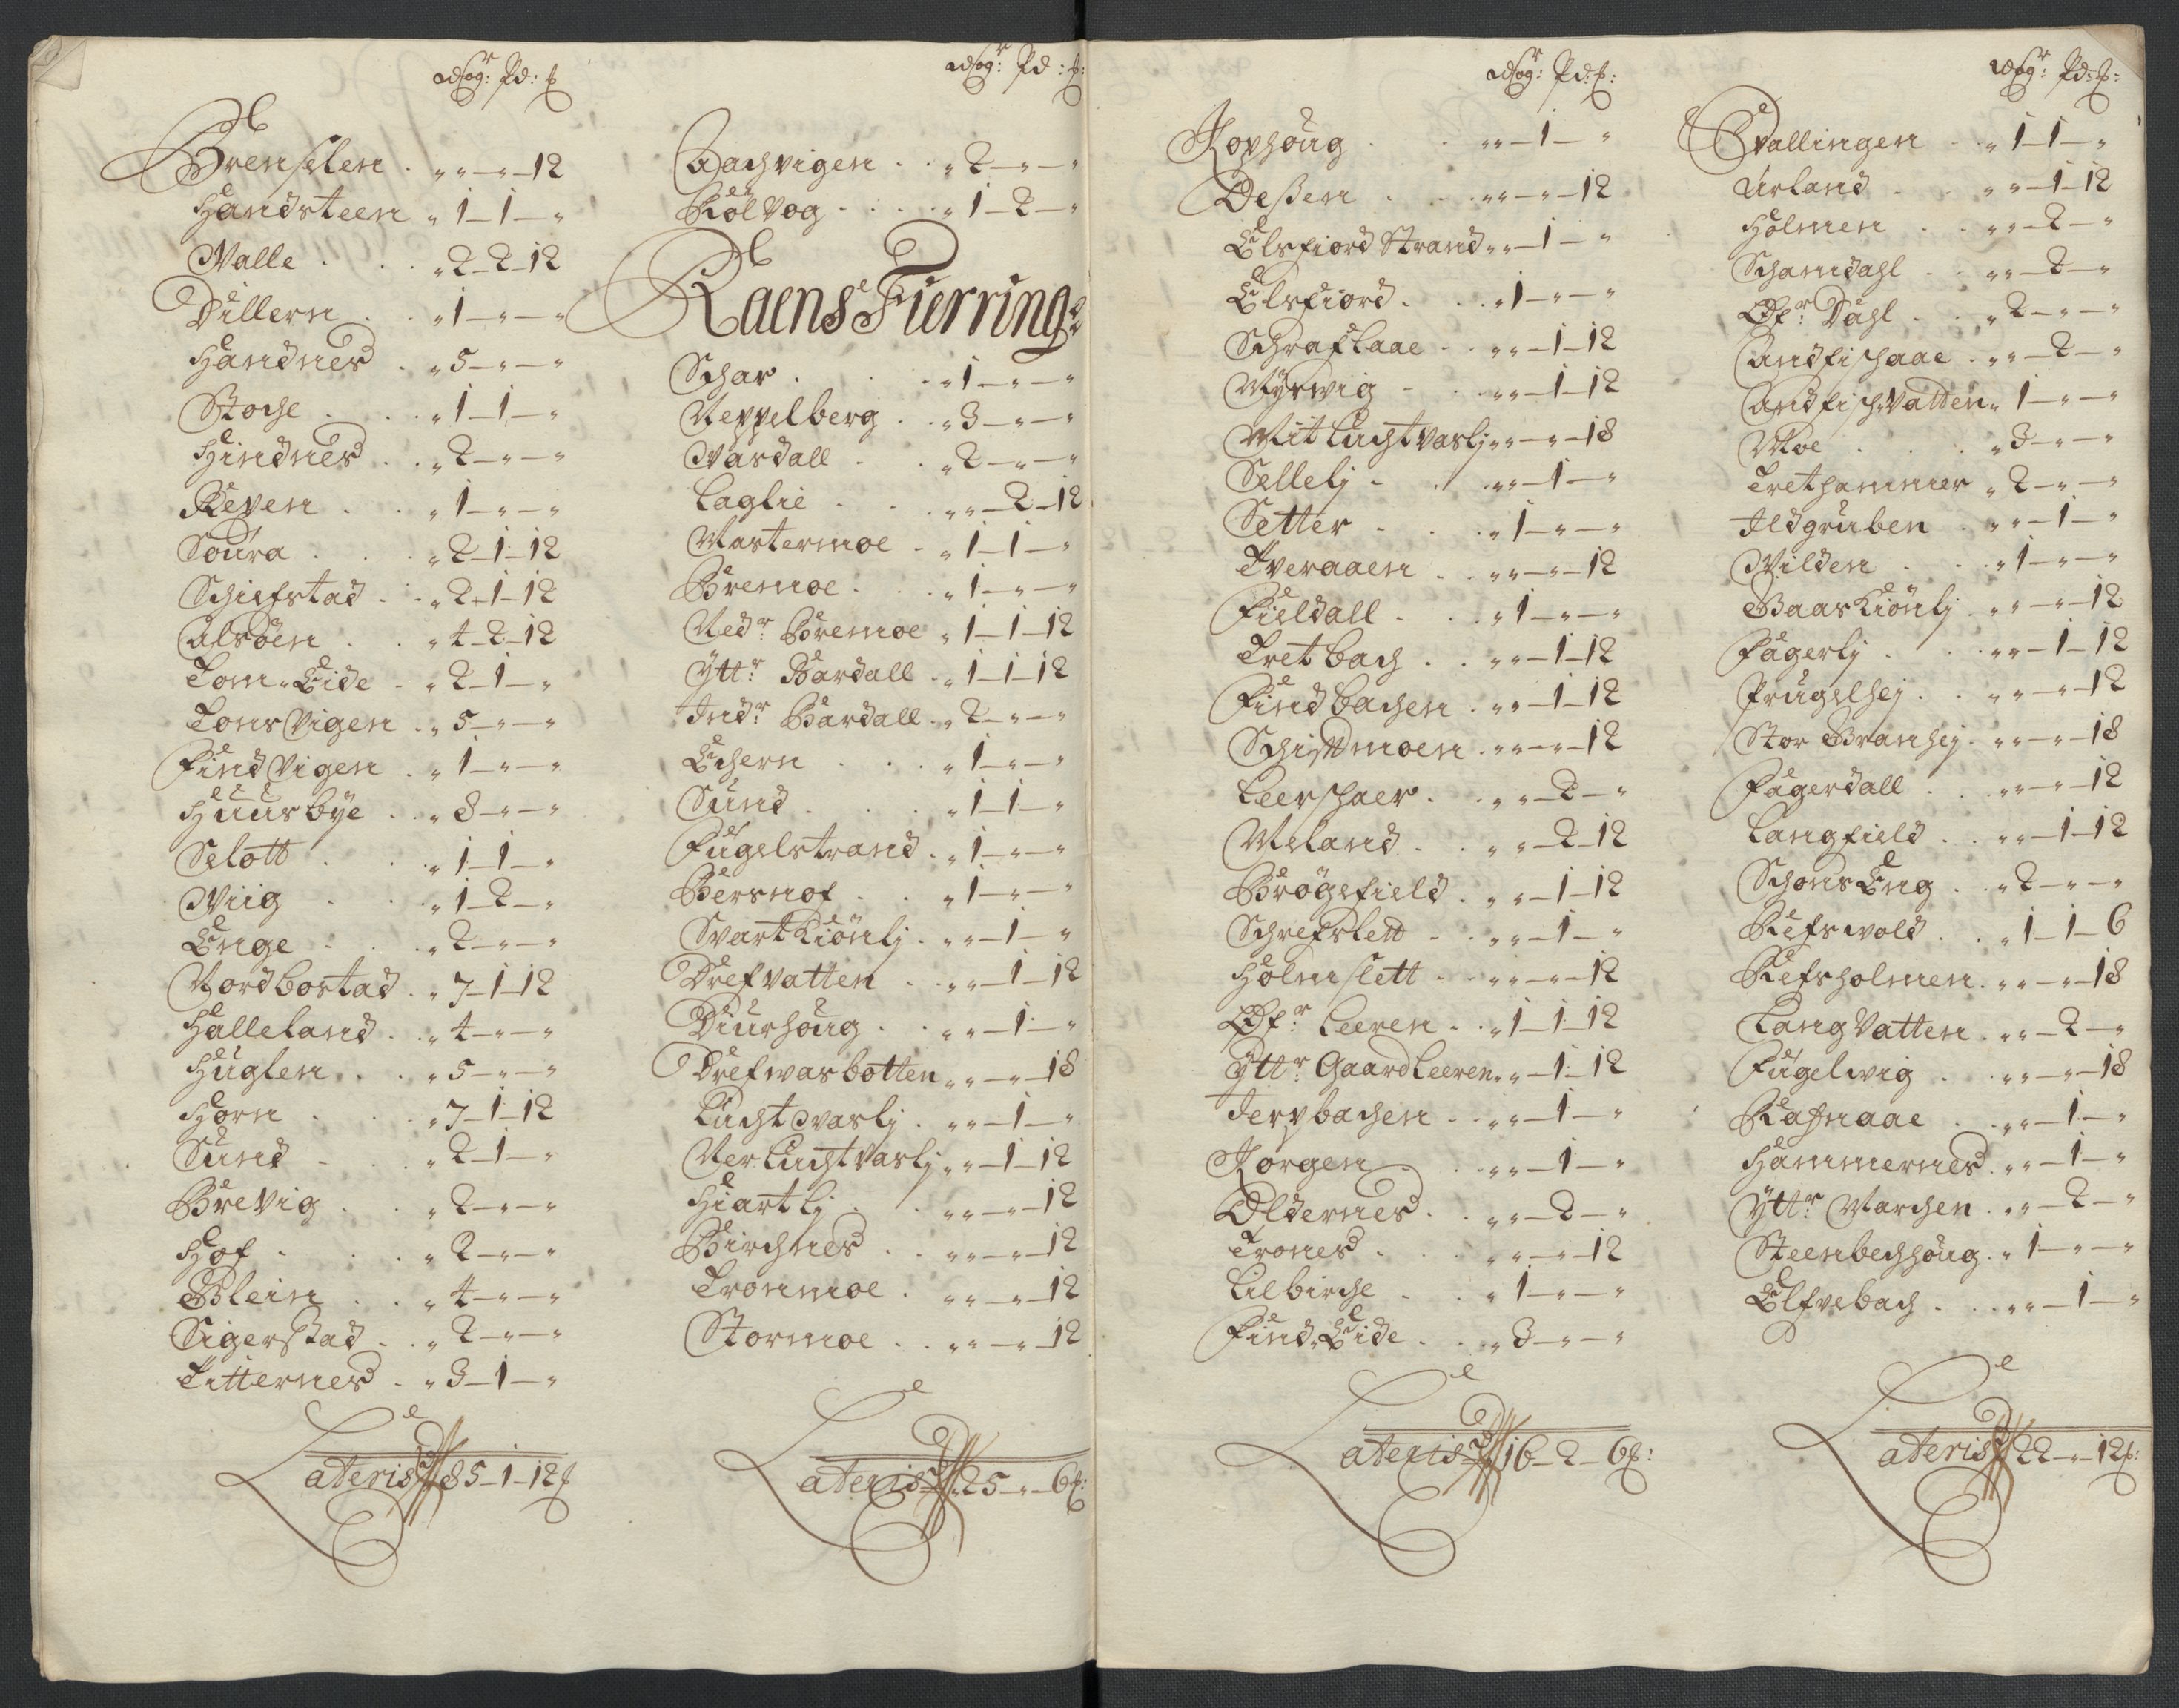 Wog: Pd: f
Brenselen . „ „ – „ – 12
Handsteen „ 1 – 1 – „
Walle . . . „ 2 – 2 – 12
Dillern . . „ 1 – „ – „
Handnes . „ 5 – „ – „
Stoche . . . „ 1 – 1 – „
Hindnes . . „ 2 – „ – „
Reven . . „ 1 – „ – „
Soura . . . „ 2 – 1 – 12
Schiefstad . . „ 2 – 1 – 12
Alsöen . . „ 4 – 2 – 12
Tom Eide . „ 2 – 1 – „
Tons Vigen . „ 5 – „ – „
Find Vigen . „ 1 – „ – „
Huusbye . . „ 8 – „ – „
Selott . . „ 1 – 1 – „
Wiig . . „ 1 – 2 – „
Enge . . „ 2 – „ – „
Nordbostad . „ 7 – 1 – 12
Halleland . . „ 4 – „ – „
Huglen . . „ 5 – „ – „
Horn . . „ 7 – 1 – 12
Sund . . „ 2 – 1 – „
Brevig . . „ 2 – „ – „
Hof . . . „ 2 – „ – „
Blein . . „ 4 – „ – „
Sigerstad . . „ 2 – „ – „
Titternes . „ 3 – 1 – „
Lateris 85 – 1 – 12 f
Wog: Pd: f:
Aachvigen . . „ 2 – „ – „
Kölvog . . . „ 1 – 2 – „
Raens Fierring
Schar . . . „ 1 – „ – „
Neppelberg . . „ 3 – „ – „
Wasdall . . „ 2 – „ – „
Laglie . . . „ „ – 2 – 12
Mastermoe . „ 1 – 1 – „
Bremoe . . . „ 1 – „ – „
Nedr: Bremoe „ 1 – 1 – 12
Yttr: Bardall . „ 1 – 1 – 12
Indr: Bardall . „ 2 – „ – „
Echern . . . „ 1 – „ – „
Sund . . . „ 1 – 1 – „
Fugelstrand . „ 1 – „ – „
Bersnof . . „ 1 – „ – „
Svart Kiönlj . „ „ – 1 – „
Drefvatten . „ „ – 1 – 12
Diurhoug . . „ „ – 1 – „
Drefwasbotten „ „ – „ – 18
Lucht Waslj . „ „ – 1 – „
Ner Luchtvaslj „ „ – 1 – 12
Hiartlj . . „ „ – „ – 12
Birchnes . . „ „ – „ – 12
Tronmoe . . „ „ – „ – 12
Stormoe . . „ „ – „ – 12
Lateris 25 – „ – 6 f:
Wog: Pd: f:
Rophoug . . „ „ – 1 – „
Deßen . . „ „ – „ – 12
Elsfiord Strand „ „ – 1 – „
Elsfiord . . . „ 1 – „ – „
Schraflaae . . „ „ – 1 – 12
Myrvig . . „ „ – 1 – 12
Mit Luchtvaslj „ „ – „ – 18
Sellelj . . „ „ – 1 – „
Setter . . . „ 1 – „ – „
Tveraaen . . „ „ – „ – 12
Fieldall . . . „ 1 – „ – „
Tretbach . . „ „ – 1 – 12
Findbachen . „ „ – 1 – 12
Schistmoen . „ „ – „ – 12
Leerschaer . . „ „ – 2 – „
Meland . . „ „ – 2 – 12
Brögefield . „ „ – 1 – 12
Schrefslett . . „ „ – 1 – „
Holmslett . . „ „ – „ – 12
Öfr: Leeren . . „ 1 – 1 – 12
Yttr: Gaard Leeren „ „ – 1 – 12
Jerpbachen . . „ „ – 1 – „
Korgen . . „ „ – 1 – „
Oldernes . . „ „ – 2 – „
Trones . . . „ „ – „ – 12
Lilbirche . . „ 1 – „ – „
Find Eide . . „ 3 – „ – „
Lateris 16 – 2 – 6 f:
Wog: Pd: f:
Svallingen . . „ 1 – 1 – „
Urland . . „ „ – 1 – 12
Holmen . . „ „ – 2 – „
Schamdahl . . „ „ – 2 – „
Öfr: Dahl . . „ 2 – „ – „
Andfischaae . „ „ – 2 – „
Andfisch Vatten „ 1 – „ – „
Moe . . . „ 3 – „ – „
Trethammer „ 2 – „ – „
Ildgruben . „ „ – 1 – „
Wilden . . „ 1 – „ – „
Baas Kiönlj . „ „ – „ – 12
Fagerlj . . „ „ – 1 – 12
Prugelhej . . „ „ – „ – 12
Stor Branhej . „ „ – „ – 18
Fagerdall . . „ „ – „ – 12
Langfield . . „ „ – 1 – 12
Schons Eng . . „ 2 – „ – „
Refswold . . „ 1 – 1 – 6
Refsholmen . „ „ – „ – 18
Lang Vatten . „ „ – 2 – „
Fugelwig . . „ „ – „ – 18
Rafnaae . . „ „ – 1 – „
Hammernes . „ „ – 1 – „
Yttr: Marchen . „ „ – 2 – „
Steenbechhoug . „ 1 – „ – „
Elfvebach . . „ „ – 1 – „
Lateris 22 – „ – 12 f: